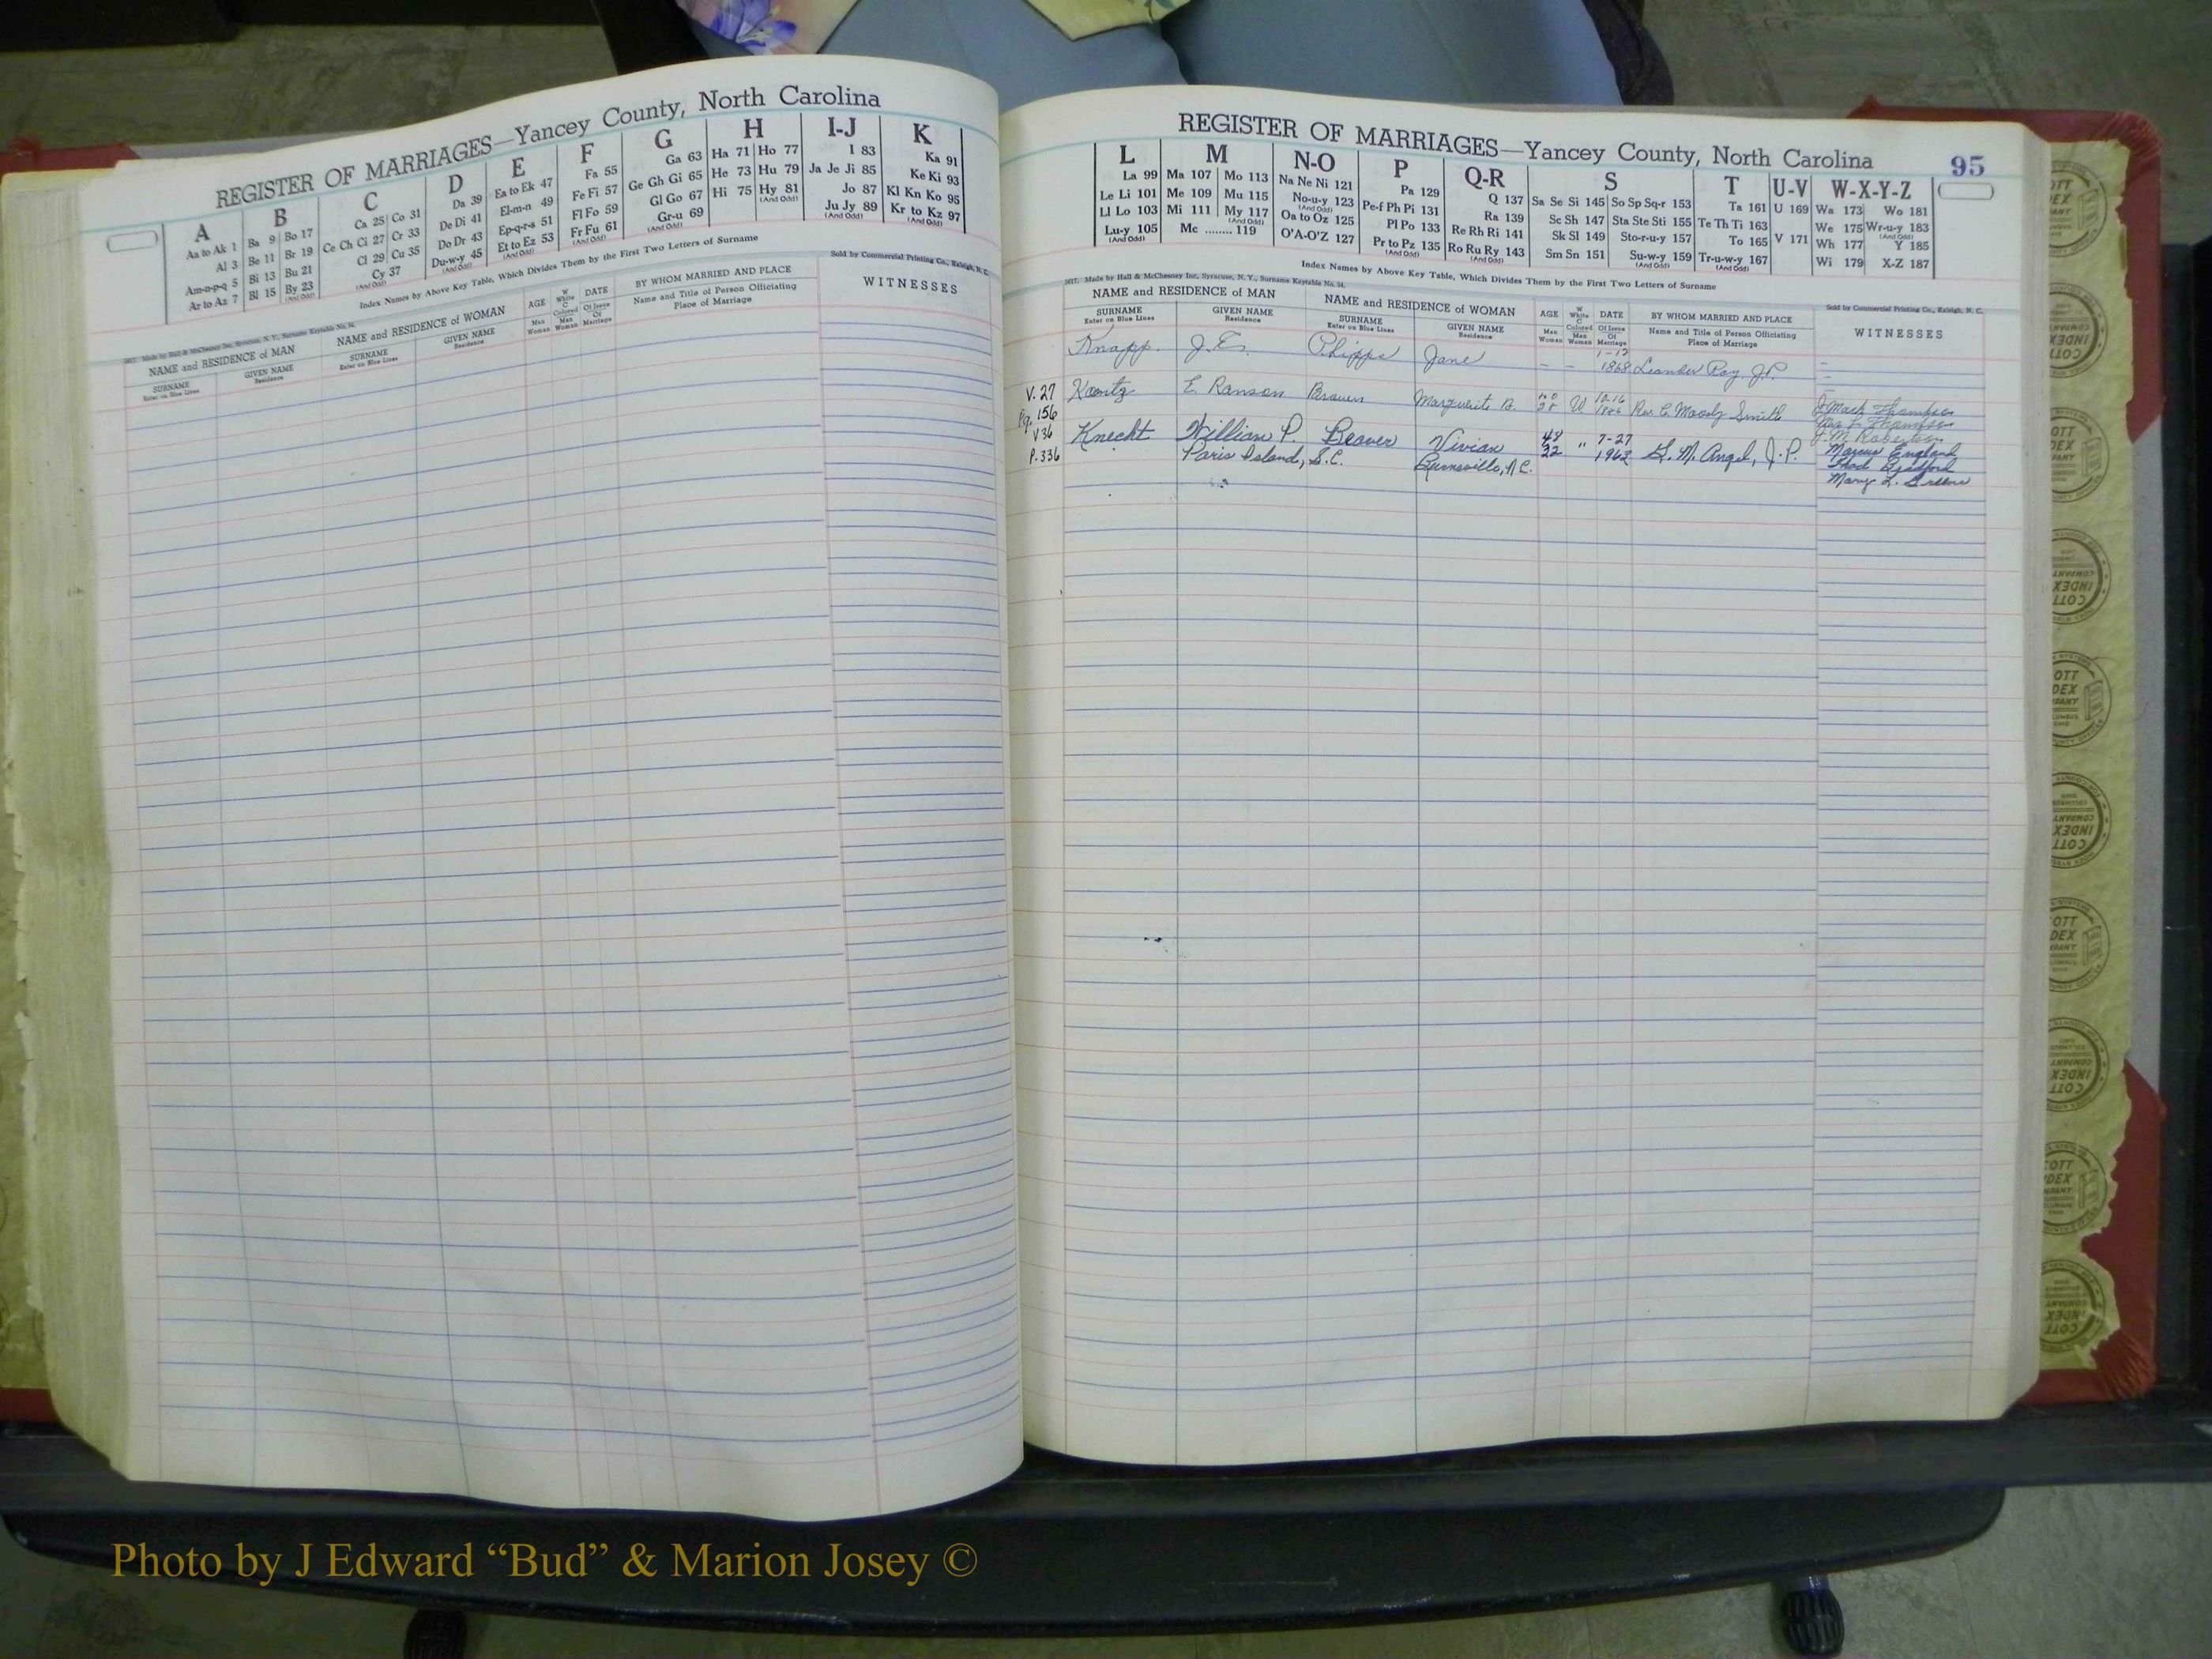 REGISTER OF MARRIAGES—Yancey County, North Carolina
A B C D E F G H I-J K
Aa to Ak 1 Ba 9 Bo 17 Ca 25 Co 31 Da 39 Ea to Ek 47 Fa 55 Ga 63 Ha 71 Ho 77 I 83 Ka 91
Al 3 Be 11 Br 19 Ce Ch Ci 27 Cr 33 De Di 41 El-m-n 49 Fe Fi 57 Ge Gh Gi 65 He 73 Hu 79 Ja Je Ji 85 Ke Ki 93
Am-n-p-q 5 Bi 13 Bu 21 Cl 29 Cu 35 Do Dr 43 Ep-q-r-s 51 Fl Fo 59 Gl Go 67 Hi 75 Hy 81 (And Odd) Jo 87 Kl Kn Ko 95
Ar to Az 7 Bl 15 By 23 (And Odd) Cy 37 (And Odd) Du-w-y 45 (And Odd) Et to Ez 53 Fr Fu 61 (And Odd) Gr-u 69 (And Odd) Ju Jy 89 (And Odd) Kr to Kz 97 (And Odd)
Index Names by Above Key Table, Which Divides Them by the First Two Letters of Surname
Made by Hall & McChesney Inc, Syracuse, N. Y., Surname Keytable No. 94. Sold by Commercial Printing Co., Raleigh, N. C.
NAME and RESIDENCE of MAN NAME and RESIDENCE of WOMAN AGE W White C Colored DATE BY WHOM MARRIED AND PLACE WITNESSES
SURNAME Enter on Blue Lines GIVEN NAME Residence SURNAME Enter on Blue Lines GIVEN NAME Residence Man Woman Man Woman Of Issue Of Marriage Name and Title of Person Officiating Place of Marriage
REGISTER OF MARRIAGES—Yancey County, North Carolina 95
L M N-O P Q-R S T U-V W-X-Y-Z
La 99 Ma 107 Mo 113 Na Ne Ni 121 Pa 129 Q 137 Sa Se Si 145 So Sp Sq-r 153 Ta 161 U 169 Wa 173 Wo 181
Le Li 101 Me 109 Mu 115 No-u-y 123 (And Odd) Pe-f Ph Pi 131 Ra 139 Sc Sh 147 Sta Ste Sti 155 Te Th Ti 163 We 175 Wr-u-y 183 (And Odd)
Ll Lo 103 Mi 111 My 117 (And Odd) Oa to Oz 125 Pl Po 133 Re Rh Ri 141 Sk Sl 149 Sto-r-u-y 157 To 165 V 171 Wh 177 Y 185
Lu-y 105 (And Odd) Mc ........ 119 O'A-O'Z 127 Pr to Pz 135 Ro Ru Ry 143 (And Odd) Sm Sn 151 Su-w-y 159 (And Odd) Tr-u-w-y 167 (And Odd) Wi 179 X-Z 187
Index Names by Above Key Table, Which Divides Them by the First Two Letters of Surname
Made by Hall & McChesney Inc, Syracuse, N. Y., Surname Keytable No. 94. Sold by Commercial Printing Co., Raleigh, N. C.
NAME and RESIDENCE of MAN NAME and RESIDENCE of WOMAN AGE W White C Colored DATE BY WHOM MARRIED AND PLACE WITNESSES
SURNAME Enter on Blue Lines GIVEN NAME Residence SURNAME Enter on Blue Lines GIVEN NAME Residence Man Woman Man Woman Of Issue Of Marriage Name and Title of Person Officiating Place of Marriage
Knapp J. E. Phipps Jane – – 1868 Leander Ray J.P.
V. 27 Koontz E. Ranson Marguerite B. W Rev. C. Moody Smith J Mack Thompson
Pg. 156
V 36 Knecht William P. Beaver Vivian 48 " 7-27 G. M. Angel, J.P. Marcus England
P. 336 Paris Island, S.C. Burnsville, N.C. 22 1962 Thad Bradford
Mary L. Greene
Photo by J Edward “Bud” & Marion Josey ©